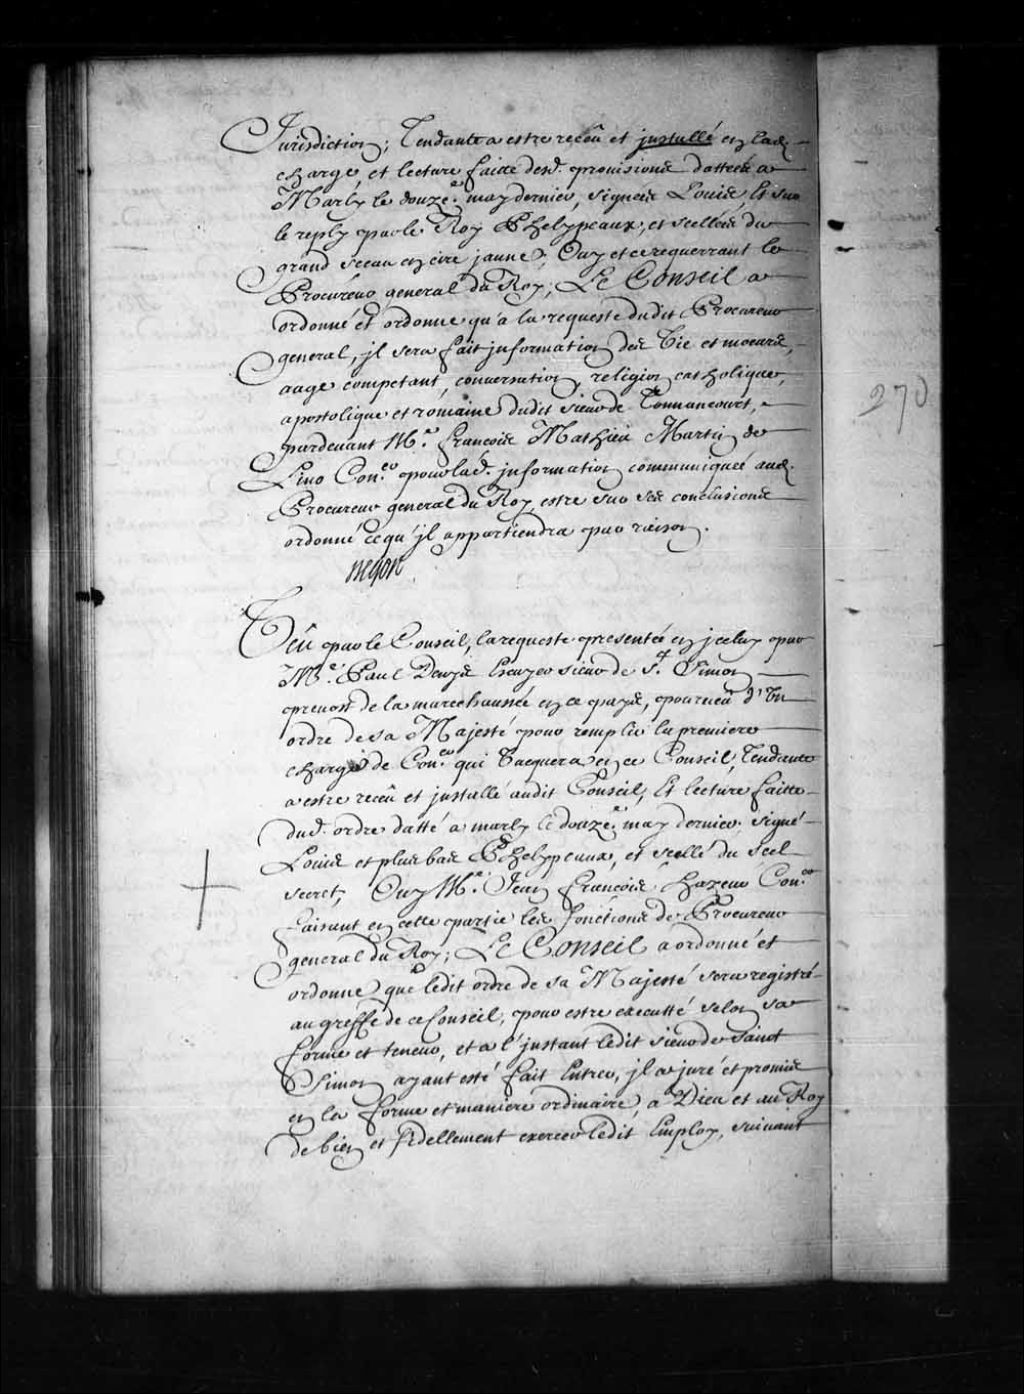 Jurisdiction; Tendante a estre receû et justallé en lad.
charge et lecture faitte desd. prouisions dattées a
Marly le douze.e may dernier, signées Louis, Et sur
le reply par le Roy Phelypeaux, et scellées du
grand sceau en cire jaune, Ouy et ce requerrant le
Procureur general du Roy; Le Conseil a
ordonné et ordonne qu'a la requeste dudit Procureur
general, jl sera fait jnformation des Vie et moeurs,
aage competant, conuersation, religion catholique,
apostolique et romaine dudit sieur de Tonnancourt,
pardeuant M.e François Mathieu Martin de
Lino Con.er pour lad. jnformation communiquée aud.
Procureur general du Roy estre sur ses conclusions
ordonné ce qu'jl appartiendra par raison.
Begon
Veû par le Conseil, la requeste presentée en jceluy par
M.e Paul Denys Escuyer sieur de S.t Simon
preuost de la mareschaussée en ce pays, pourueû d'Vn
ordre de sa Majesté pour remplir la premiere
charge de Con.er qui Vacquera en ce Conseil, Tendante
a estre receû et justallé audit Conseil, Et lecture faitte
dud. ordre datté a marly le douze.e may dernier. signé
Louis et plus bas Phelypeaux, et scellé du scel
secret, Ouy M.e Jean François hazeur Con.er
faisant en cette partie les fonctions de Procureur
general du Roy; Le Conseil a ordonné et
ordonne que ledit ordre de sa Majesté sera registré
au greffe de ce Conseil, pour estre executté selon sa
forme et teneur, et a l'justant ledit sieur de Saint
Simon ayant esté fait Entrer, jl a juré et promis
en la forme et maniere ordinaire, a Dieu et au Roy
de bien et fidellement exercer ledit Employ, suiuant
270